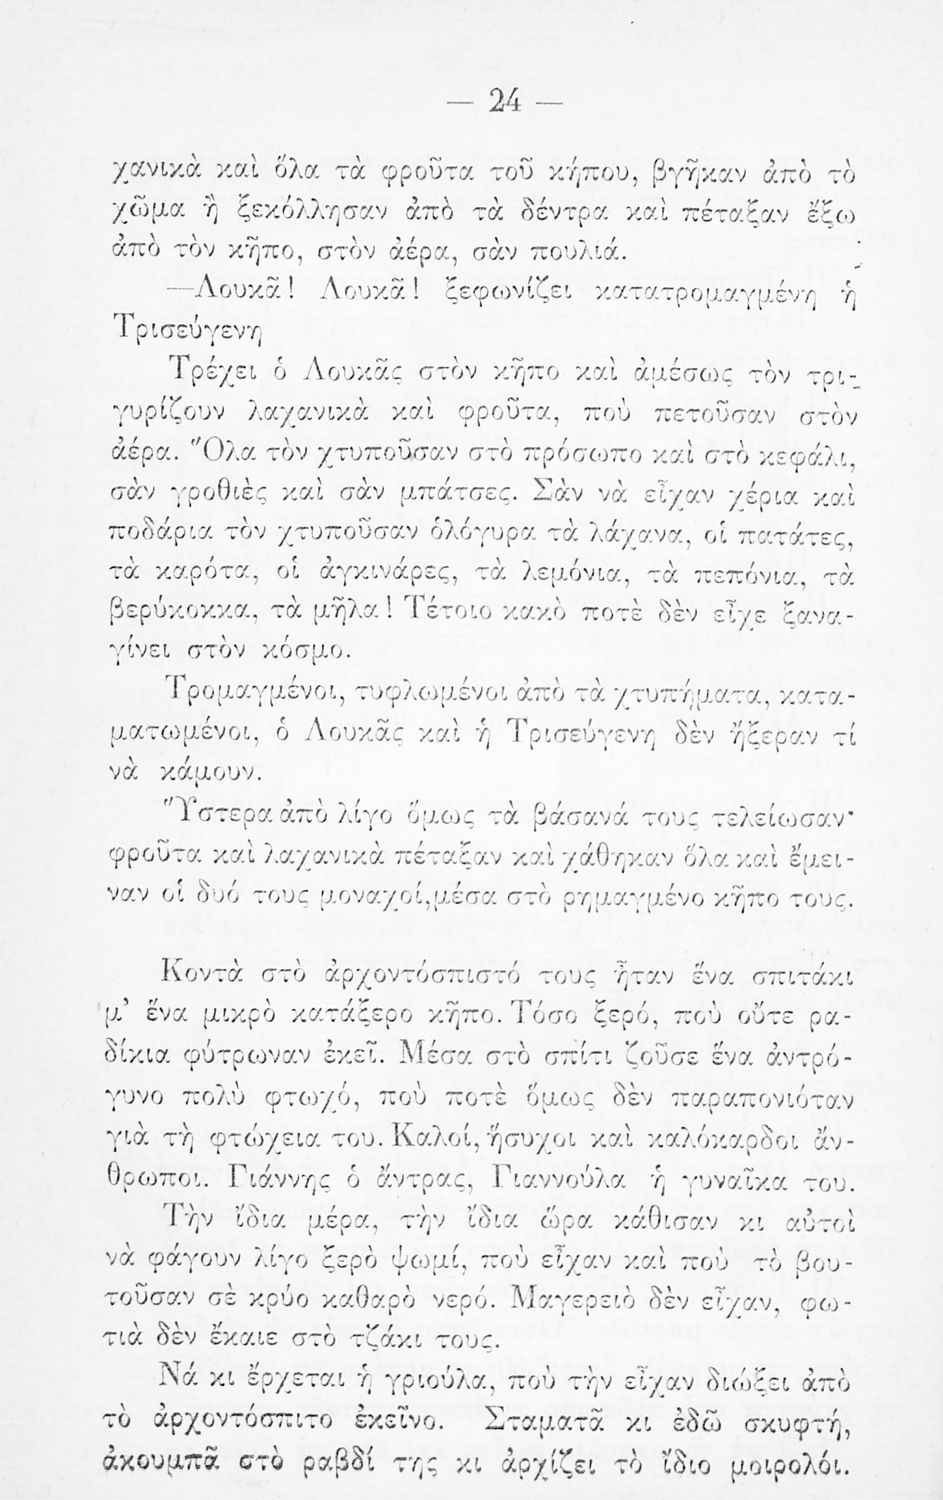 — 24 —
χανικὰ καὶ ὅλα τὰ φροῦτα τοῦ κήπου, βγῆκαν ἀπὸ τὸ
χῶμα ἢ ξεκόλλησαν ἀπὸ τὰ δέντρα καὶ πέταξαν ἔξω
ἀπὸ τὸν κῆπο, στὸν ἀέρα, σὰν πουλιά.
—Λουκᾶ! Λουκᾶ! ξεφωνίζει κατατρομαγμένη ἡ
Τρισεύγενη
Τρέχει ὁ Λουκᾶς στὸν κῆπο καὶ ἀμέσως τὸν τρι-
γυρίζουν λαχανικὰ καὶ φροῦτα, ποὺ πετοῦσαν στὸν
ἀέρα. Ὅλα τὸν χτυποῦσαν στὸ πρόσωπο καὶ στὸ κεφάλι,
σὰν γροθιὲς καὶ σὰν μπάτσες. Σὰν νὰ εἶχαν χέρια καὶ
ποδάρια τὸν χτυποῦσαν ὁλόγυρα τὰ λάχανα, οἱ πατάτες,
τὰ καρότα, οἱ ἀγκινάρες, τὰ λεμόνια, τὰ πεπόνια, τὰ
βερύκοκκα, τὰ μῆλα! Τέτοιο κακὸ ποτὲ δὲν εἶχε ξανα-
γίνει στὸν κόσμο.
Τρομαγμένοι, τυφλωμένοι ἀπὸ τὰ χτυπήματα, κατα-
ματωμένοι, ὁ Λουκᾶς καὶ ἡ Τρισεύγενη δὲν ἤξεραν τί
νὰ κάμουν.
Ὕστερα ἀπὸ λίγο ὅμως τὰ βάσανά τους τελείωσαν·
φροῦτα καὶ λαχανικὰ πέταξαν καὶ χάθηκαν ὅλα καὶ ἔμει-
ναν οἱ δυό τους μοναχοί,μέσα στὸ ρημαγμένο κῆπο τους.
Κοντὰ στὸ ἀρχοντόσπιστό τους ἦταν ἕνα σπιτάκι
μ' ἕνα μικρὸ κατάξερο κῆπο. Τόσο ξερό, ποὺ οὔτε ρα-
δίκια φύτρωναν ἐκεῖ. Μέσα στὸ σπίτι ζοῦσε ἕνα ἀντρό-
γυνο πολὺ φτωχό, ποὺ ποτὲ ὅμως δὲν παραπονιόταν
γιὰ τὴ φτώχεια του. Καλοί, ἥσυχοι καὶ καλόκαρδοι ἄν-
θρωποι. Γιάννης ὁ ἄντρας, Γιαννούλα ἡ γυναῖκα του.
Τὴν ἴδια μέρα, τὴν ἴδια ὥρα κάθισαν κι αὐτοὶ
νὰ φάγουν λίγο ξερὸ ψωμί, ποὺ εἶχαν καὶ ποὺ τὸ βου-
τοῦσαν σὲ κρύο καθαρὸ νερό. Μαγερειὸ δὲν εἶχαν, φω-
τιὰ δὲν ἔκαιε στὸ τζάκι τους.
Νά κι ἔρχεται ἡ γριούλα, ποὺ τὴν εἶχαν διώξει ἀπὸ
τὸ ἀρχοντόσπιτο ἐκεῖνο. Σταματᾶ κι ἐδῶ σκυφτή,
ἀκουμπᾶ στὸ ραβδί της κι ἀρχίζει τὸ ἴδιο μοιρολόι.